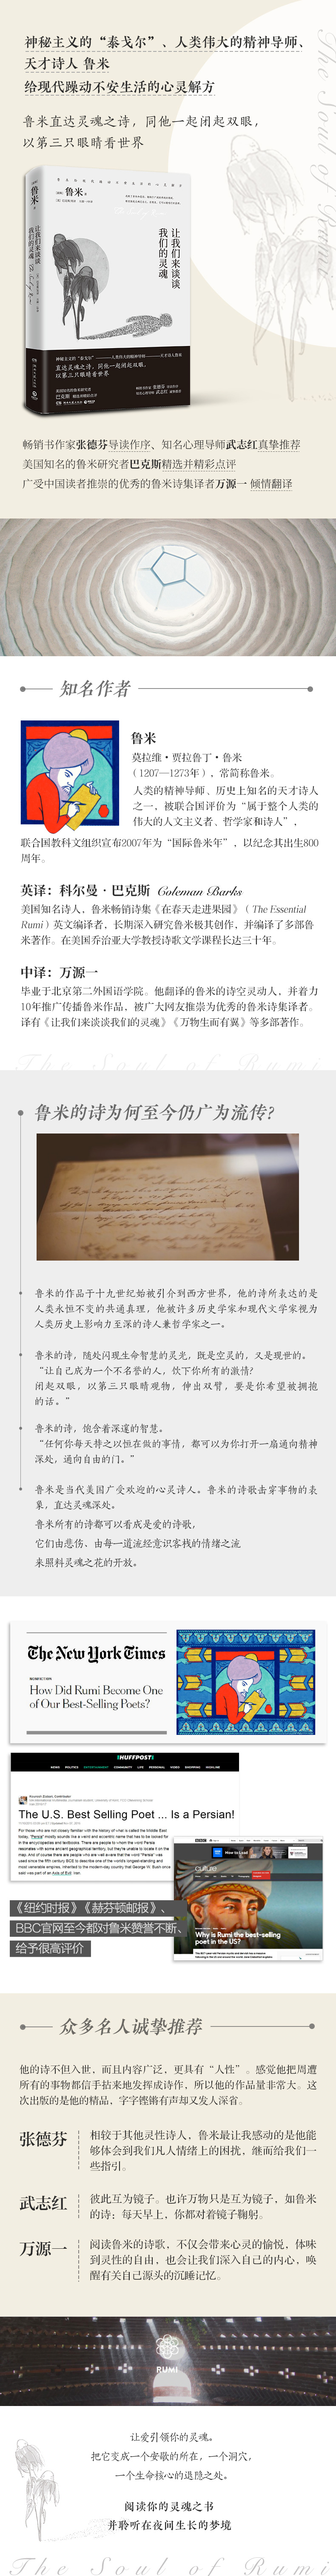 神秘主义的“泰戈尔”、人类伟大的精神导师、
天才诗人 鲁米
给现代躁动不安生活的心灵解方
鲁米直达灵魂之诗，同他一起闭起双眼，
以第三只眼睛看世界
鲁米
让我们来谈谈
我们的灵魂
鲁米
让我们来谈谈
我们的灵魂
直达灵魂之诗，同他一起闭起双眼，
以第三只眼睛看世界
畅销书作家张德芬导读作序、知名心理导师武志红真挚推荐
美国知名的鲁米研究者巴克斯精选并精彩点评
广受中国读者推崇的优秀的鲁米诗集译者万源一 倾情翻译
知名作者
鲁米
莫拉维·贾拉鲁丁·鲁米
（1207—1273年），常简称鲁米。
人类的精神导师、历史上知名的天才诗人
之一，被联合国评价为“属于整个人类的
伟大的人文主义者、哲学家和诗人”，
联合国教科文组织宣布2007年为“国际鲁米年”，以纪念其出生800
周年。
英译：科尔曼·巴克斯 Coleman Barks
美国知名诗人，鲁米畅销诗集《在春天走进果园》（The Essential
Rumi）英文编译者，长期深入研究鲁米极其创作，并编译了多部鲁
米著作。在美国乔治亚大学教授诗歌文学课程长达三十年。
中译：万源一
毕业于北京第二外国语学院。他翻译的鲁米的诗空灵动人，并着力
10年推广传播鲁米作品，被广大网友推崇为优秀的鲁米诗集译者。
译有《让我们来谈谈我们的灵魂》《万物生而有翼》等多部著作。
The Soul of Rumi
鲁米的诗为何至今仍广为流传?
鲁米的作品于十九世纪始被引介到西方世界，他的诗所表达的是
人类永恒不变的共通真理，他被许多历史学家和现代文学家视为
人类历史上影响力至深的诗人兼哲学家之一。
鲁米的诗，随处闪现生命智慧的灵光，既是空灵的，又是现世的。
“让自己成为一个不名誉的人，饮下你所有的激情?
闭起双眼，以第三只眼睛观物，伸出双臂，要是你希望被拥抱
的话。”
鲁米的诗，饱含着深邃的智慧。
“任何你每天持之以恒在做的事情，都可以为你打开一扇通向精神
深处，通向自由的门。”
鲁米是当代美国广受欢迎的心灵诗人。鲁米的诗歌击穿事物的表
象，直达灵魂深处。
鲁米所有的诗都可以看成是爱的诗歌，
它们由悲伤、由每一道流经意识客栈的情绪之流
来照料灵魂之花的开放。
The New York Times
How Did Rumi Become One
of Our Best-Selling Poets?
HUFFPOST
The U.S. Best Selling Poet ... Is a Persian!
BBC
culture
Why is Rumi the best-selling
poet in the US?
《纽约时报》《赫芬顿邮报》、
BBC官网至今都对鲁米赞誉不断、
给予很高评价
众多名人诚挚推荐
他的诗不但入世，而且内容广泛，更具有“人性”。感觉他把周遭
所有的事物都信手拈来地发挥成诗作，所以他的作品量非常大。这
次出版的是他的精品，字字铿锵有声却又发人深省。
张德芬
相较于其他灵性诗人，鲁米最让我感动的是他能
够体会到我们凡人情绪上的困扰，继而给我们一
些指引。
武志红
彼此互为镜子。也许万物只是互为镜子，如鲁米
的诗；每天早上，你都对着镜子鞠躬。
万源一
阅读鲁米的诗歌，不仅会带来心灵的愉悦，体味
到灵性的自由，也会让我们深入自己的内心，唤
醒有关自己源头的沉睡记忆。
RUMI
让爱引领你的灵魂。
把它变成一个安歇的所在，一个洞穴，
一个生命核心的退隐之处。
阅读你的灵魂之书
并聆听在夜间生长的梦境
The Soul of Rumi